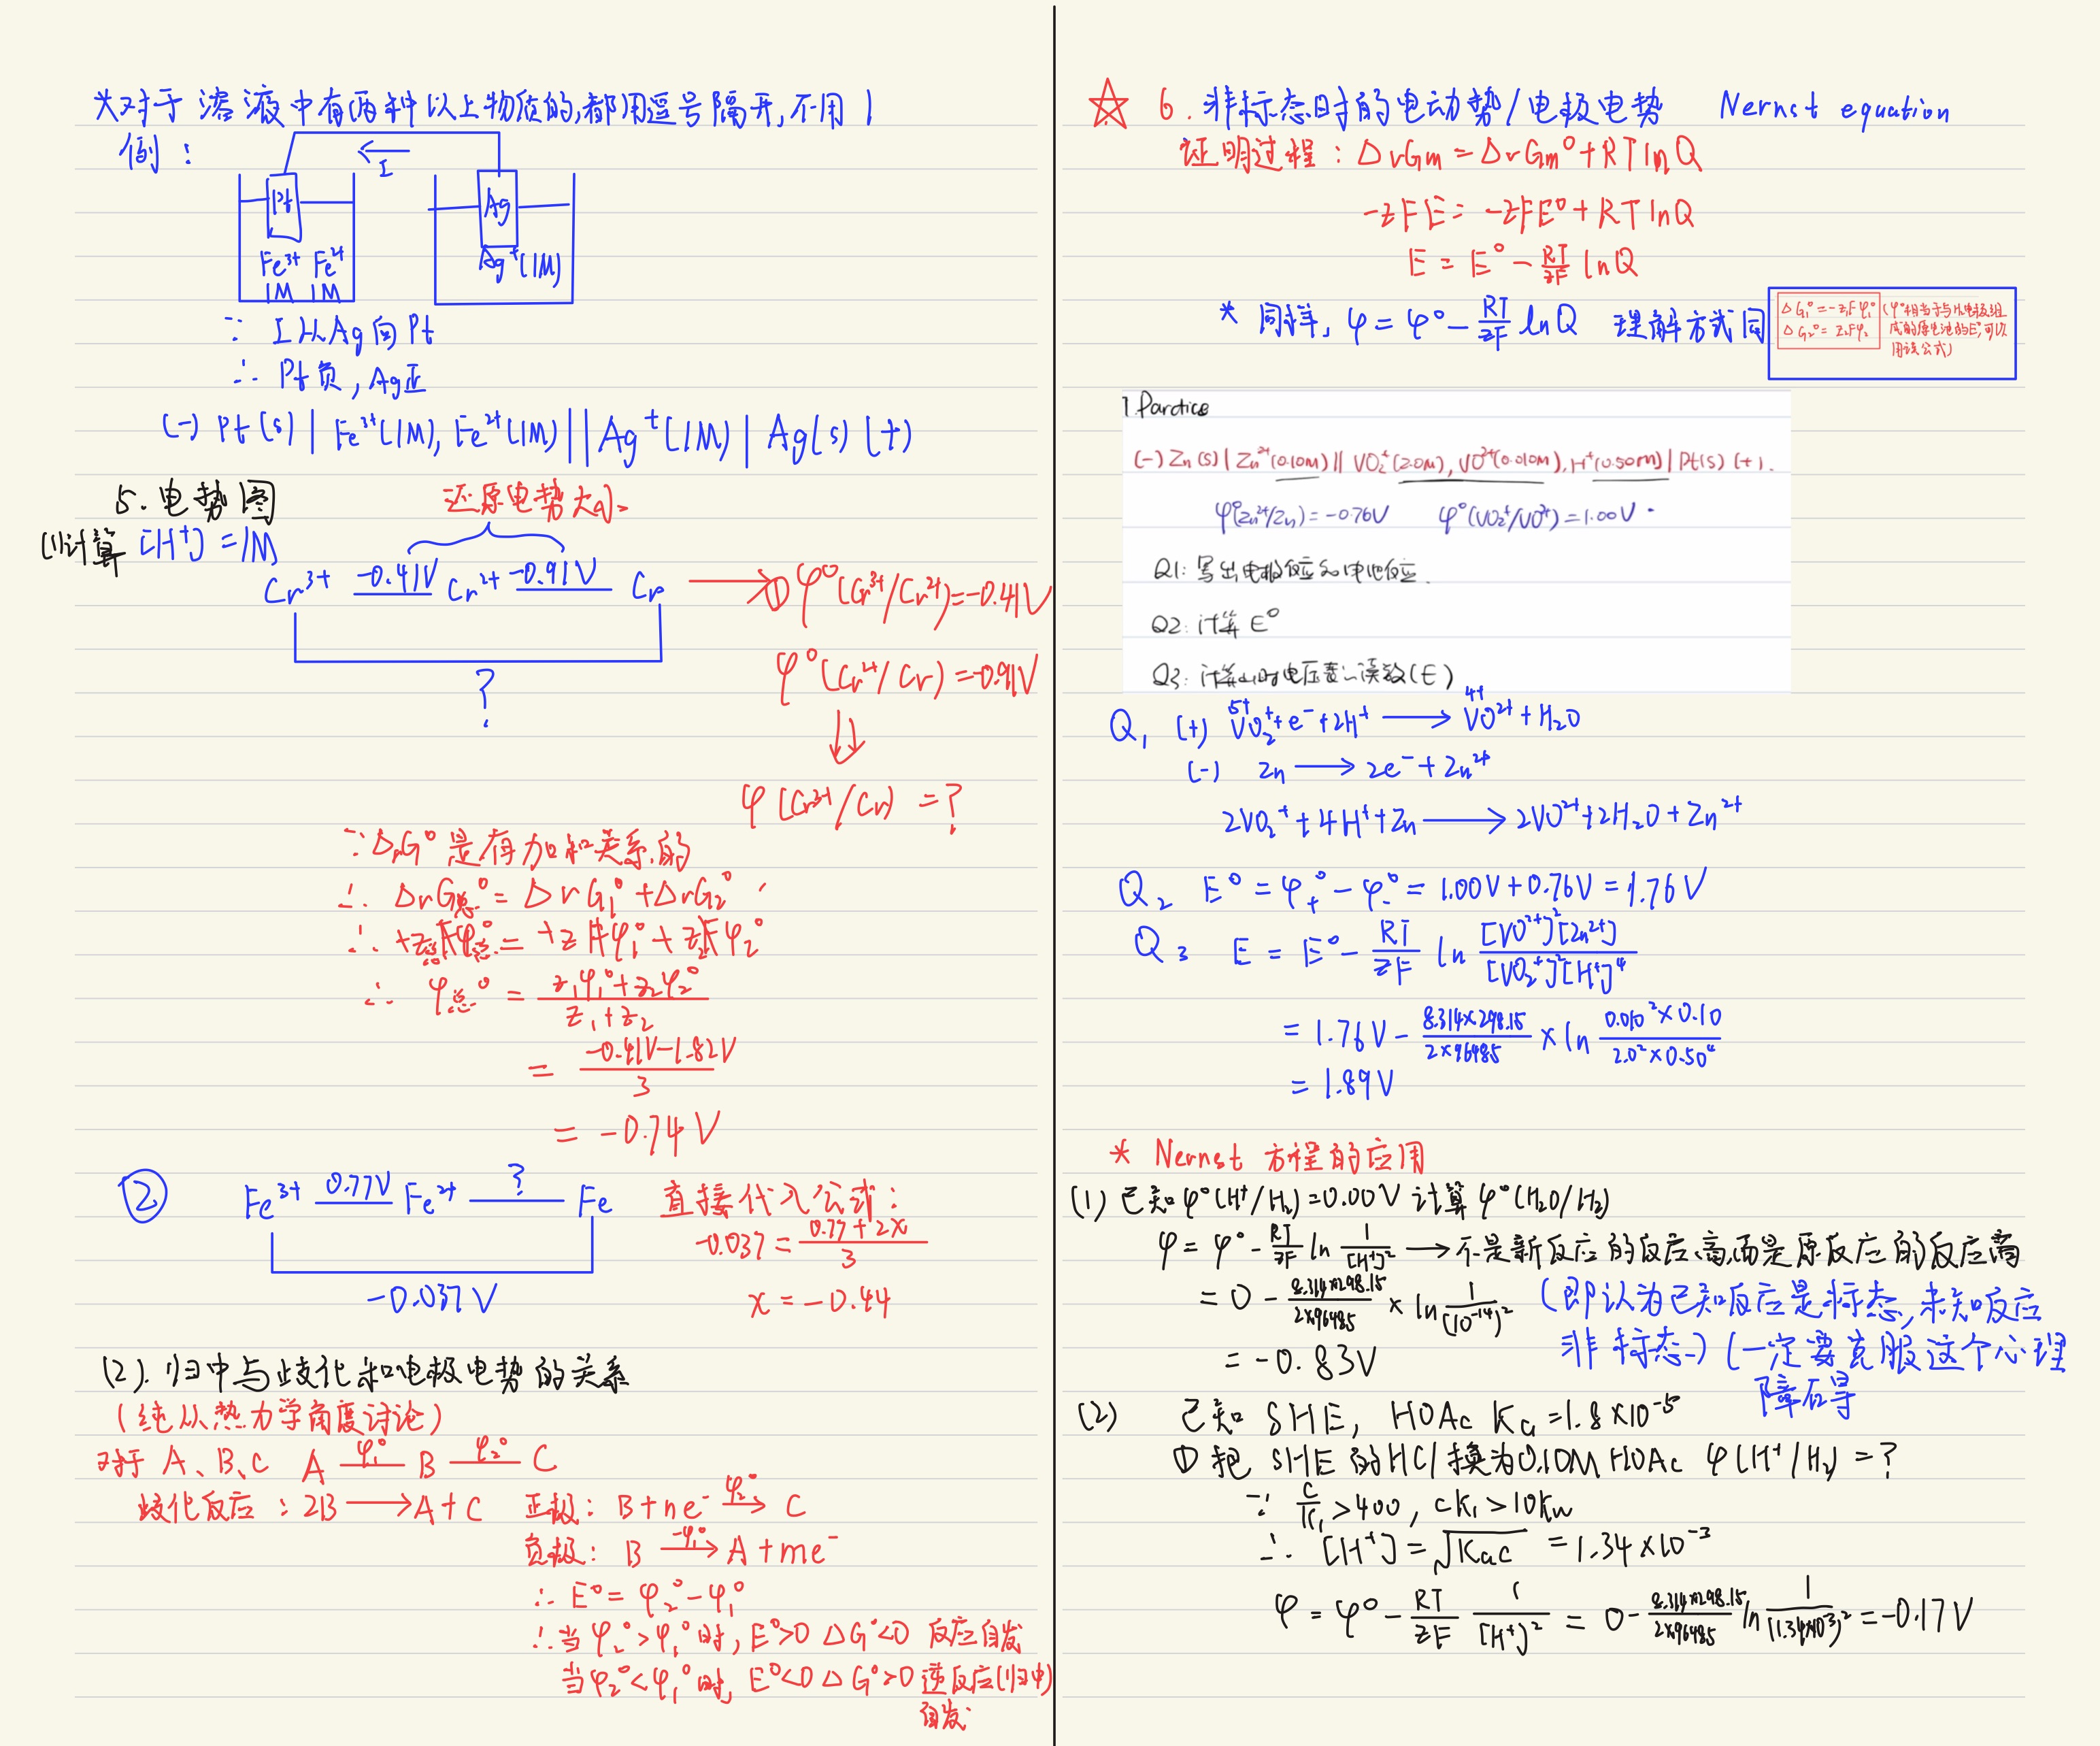 *对于溶液中有两种以上物质的,都用逗号隔开,不用|
例:
I
Pt
Ag
Fe³⁺ Fe²⁺
1M 1M
Ag⁺(1M)
∵ I从Ag向Pt
∴ Pt负,Ag正
(-) Pt(s) | Fe³⁺(1M), Fe²⁺(1M) || Ag⁺(1M) | Ag(s) (+)
5.电势图
还原电势大小
(1)计算 [H⁺]=1M
Cr³⁺ -0.41V Cr²⁺ -0.91V Cr → ① φ°(Cr³⁺/Cr²⁺)=-0.41V
?
φ°(Cr²⁺/Cr)=-0.91V
φ(Cr³⁺/Cr) =?
∵ΔrG°是有加和关系的
∴ ΔrG总° = ΔrG₁° + ΔrG₂°
∴ +z总Fφ总° = +z₁Fφ₁° + z₂Fφ₂°
∴ φ总° = (z₁φ₁°+z₂φ₂°)/(z₁+z₂)
= (-0.41V-1.82V)/3
= -0.74V
② Fe³⁺ 0.77V Fe²⁺ ? Fe
-0.037V
直接代入公式:
-0.037 = (0.77+2x)/3
x = -0.44
(2).归中与歧化和电极电势的关系
(纯从热力学角度讨论)
对于A、B、C A φ₁° B φ₂° C
歧化反应:2B → A+C 正极: B+ne⁻ φ₂° → C
负极: B -φ₁° → A+me⁻
∴ E° = φ₂°-φ₁°
∴当φ₂°>φ₁°时, E°>0 ΔG°<0 反应自发
当φ₂°<φ₁°时, E°<0 ΔG°>0 逆反应(归中)
自发
☆ 6.非标态时的电动势/电极电势 Nernst equation
证明过程:ΔrGm = ΔrGm°+RTlnQ
-zFE = -zFE°+RTlnQ
E = E° - RT/zF lnQ
* 同样, φ=φ° - RT/zF lnQ 理解方式同
ΔG₁°=-z₁Fφ₁°
ΔG₂°= z₂Fφ₂
(φ°相当于与H₂电极组
成的原电池的E°,可以
用该公式)
7.Pardice
(-) Zn(s) | Zn²⁺(0.10M) || VO₂⁺(2.0M), VO²⁺(0.010M), H⁺(0.50M) | Pt(s) (+).
φ°(Zn²⁺/Zn) = -0.76V φ°(VO₂⁺/VO²⁺) = 1.00V.
Q1: 写出电极反应和电池反应.
Q2: 计算 E°
Q3: 计算此时电压表的读数(E)
Q₁ (+) 5+ VO₂⁺+e⁻+2H⁺ → 4+ VO²⁺+H₂O
(-) Zn → 2e⁻+Zn²⁺
2VO₂⁺+4H⁺+Zn → 2VO²⁺+2H₂O+Zn²⁺
Q₂ E° = φ₊°-φ₋° = 1.00V+0.76V = 1.76V
Q₃ E = E° - RT/zF ln [VO²⁺]²[Zn²⁺]/[VO₂⁺]²[H⁺]⁴
= 1.76V - 8.314×298.15/2×96485 × ln 0.010²×0.10/2.0²×0.50⁴
= 1.89V
* Nernst 方程的应用
(1) 已知φ°(H⁺/H₂)=0.00V 计算φ°(H₂O/H₂)
φ = φ° - RT/zF ln 1/[H⁺]² → 不是新反应的反应商,而是原反应的反应商
= 0 - 8.314×298.15/2×96485 × ln 1/(10⁻¹⁴)²
(即认为已知反应是标态,未知反应
= -0.83V
非标态)(一定要克服这个心理
障碍
(2) 已知SHE, HOAc Ka=1.8×10⁻⁵
①把SHE的HCl换为0.10M HOAc φ(H⁺/H₂)=?
∵ c/K₁>400, cK₁>10Kw
∴ [H⁺]=√Kac = 1.34×10⁻³
φ = φ° - RT/zF 1/[H⁺]² = 0 - 8.314×298.15/2×96485 ln 1/(1.34×10⁻³)² = -0.17V